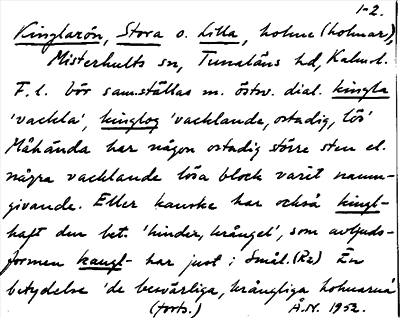 1-2.
Kinglarön, Stora o. Lilla, holme (holmar),
Misterhults sn, Tunaläns hd, Kalm.l.
F.l. bör sam.ställas m. östsv. dial. kingla
'vackla', kinglog 'vacklande, ostadig, lös'
Måhända har någon ostadig större sten el.
några vacklande lösa block varit namn-
givande. Eller kanske har också kingl-
haft den bet. 'hinder, krångel', som avljuds-
formen kangl- har just i Smål. (Rz) En
betydelse 'de besvärliga, krångliga holmarna
(forts.) Å.N. 1952.